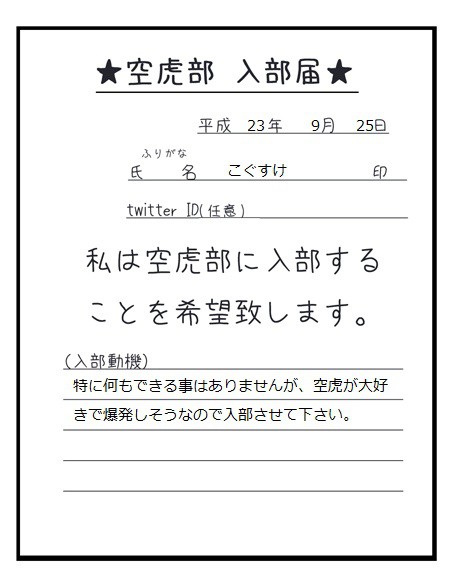 ★空虎部 入部届★
平成 23年 9月 25日
ふりがな
氏 名 こぐすけ 印
twitter ID(任意)
私は空虎部に入部する
ことを希望致します。
(入部動機)
特に何もできる事はありませんが、空虎が大好
きで爆発しそうなので入部させて下さい。